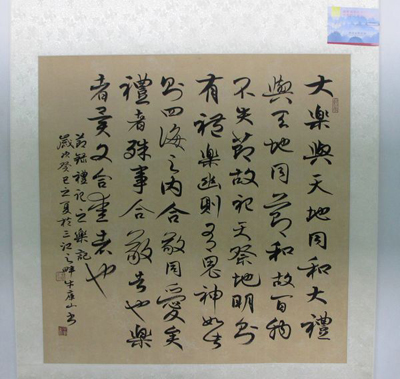 大樂與天地同和大禮
與天地同節和故百物
不失節故祀天祭地明則
有禮樂幽則有鬼神如此
則四海之內合敬同愛矣
禮者殊事合敬者也樂
者異文合愛者也
節錄禮記之樂記
歲次癸巳之夏於三江之畔牛山書